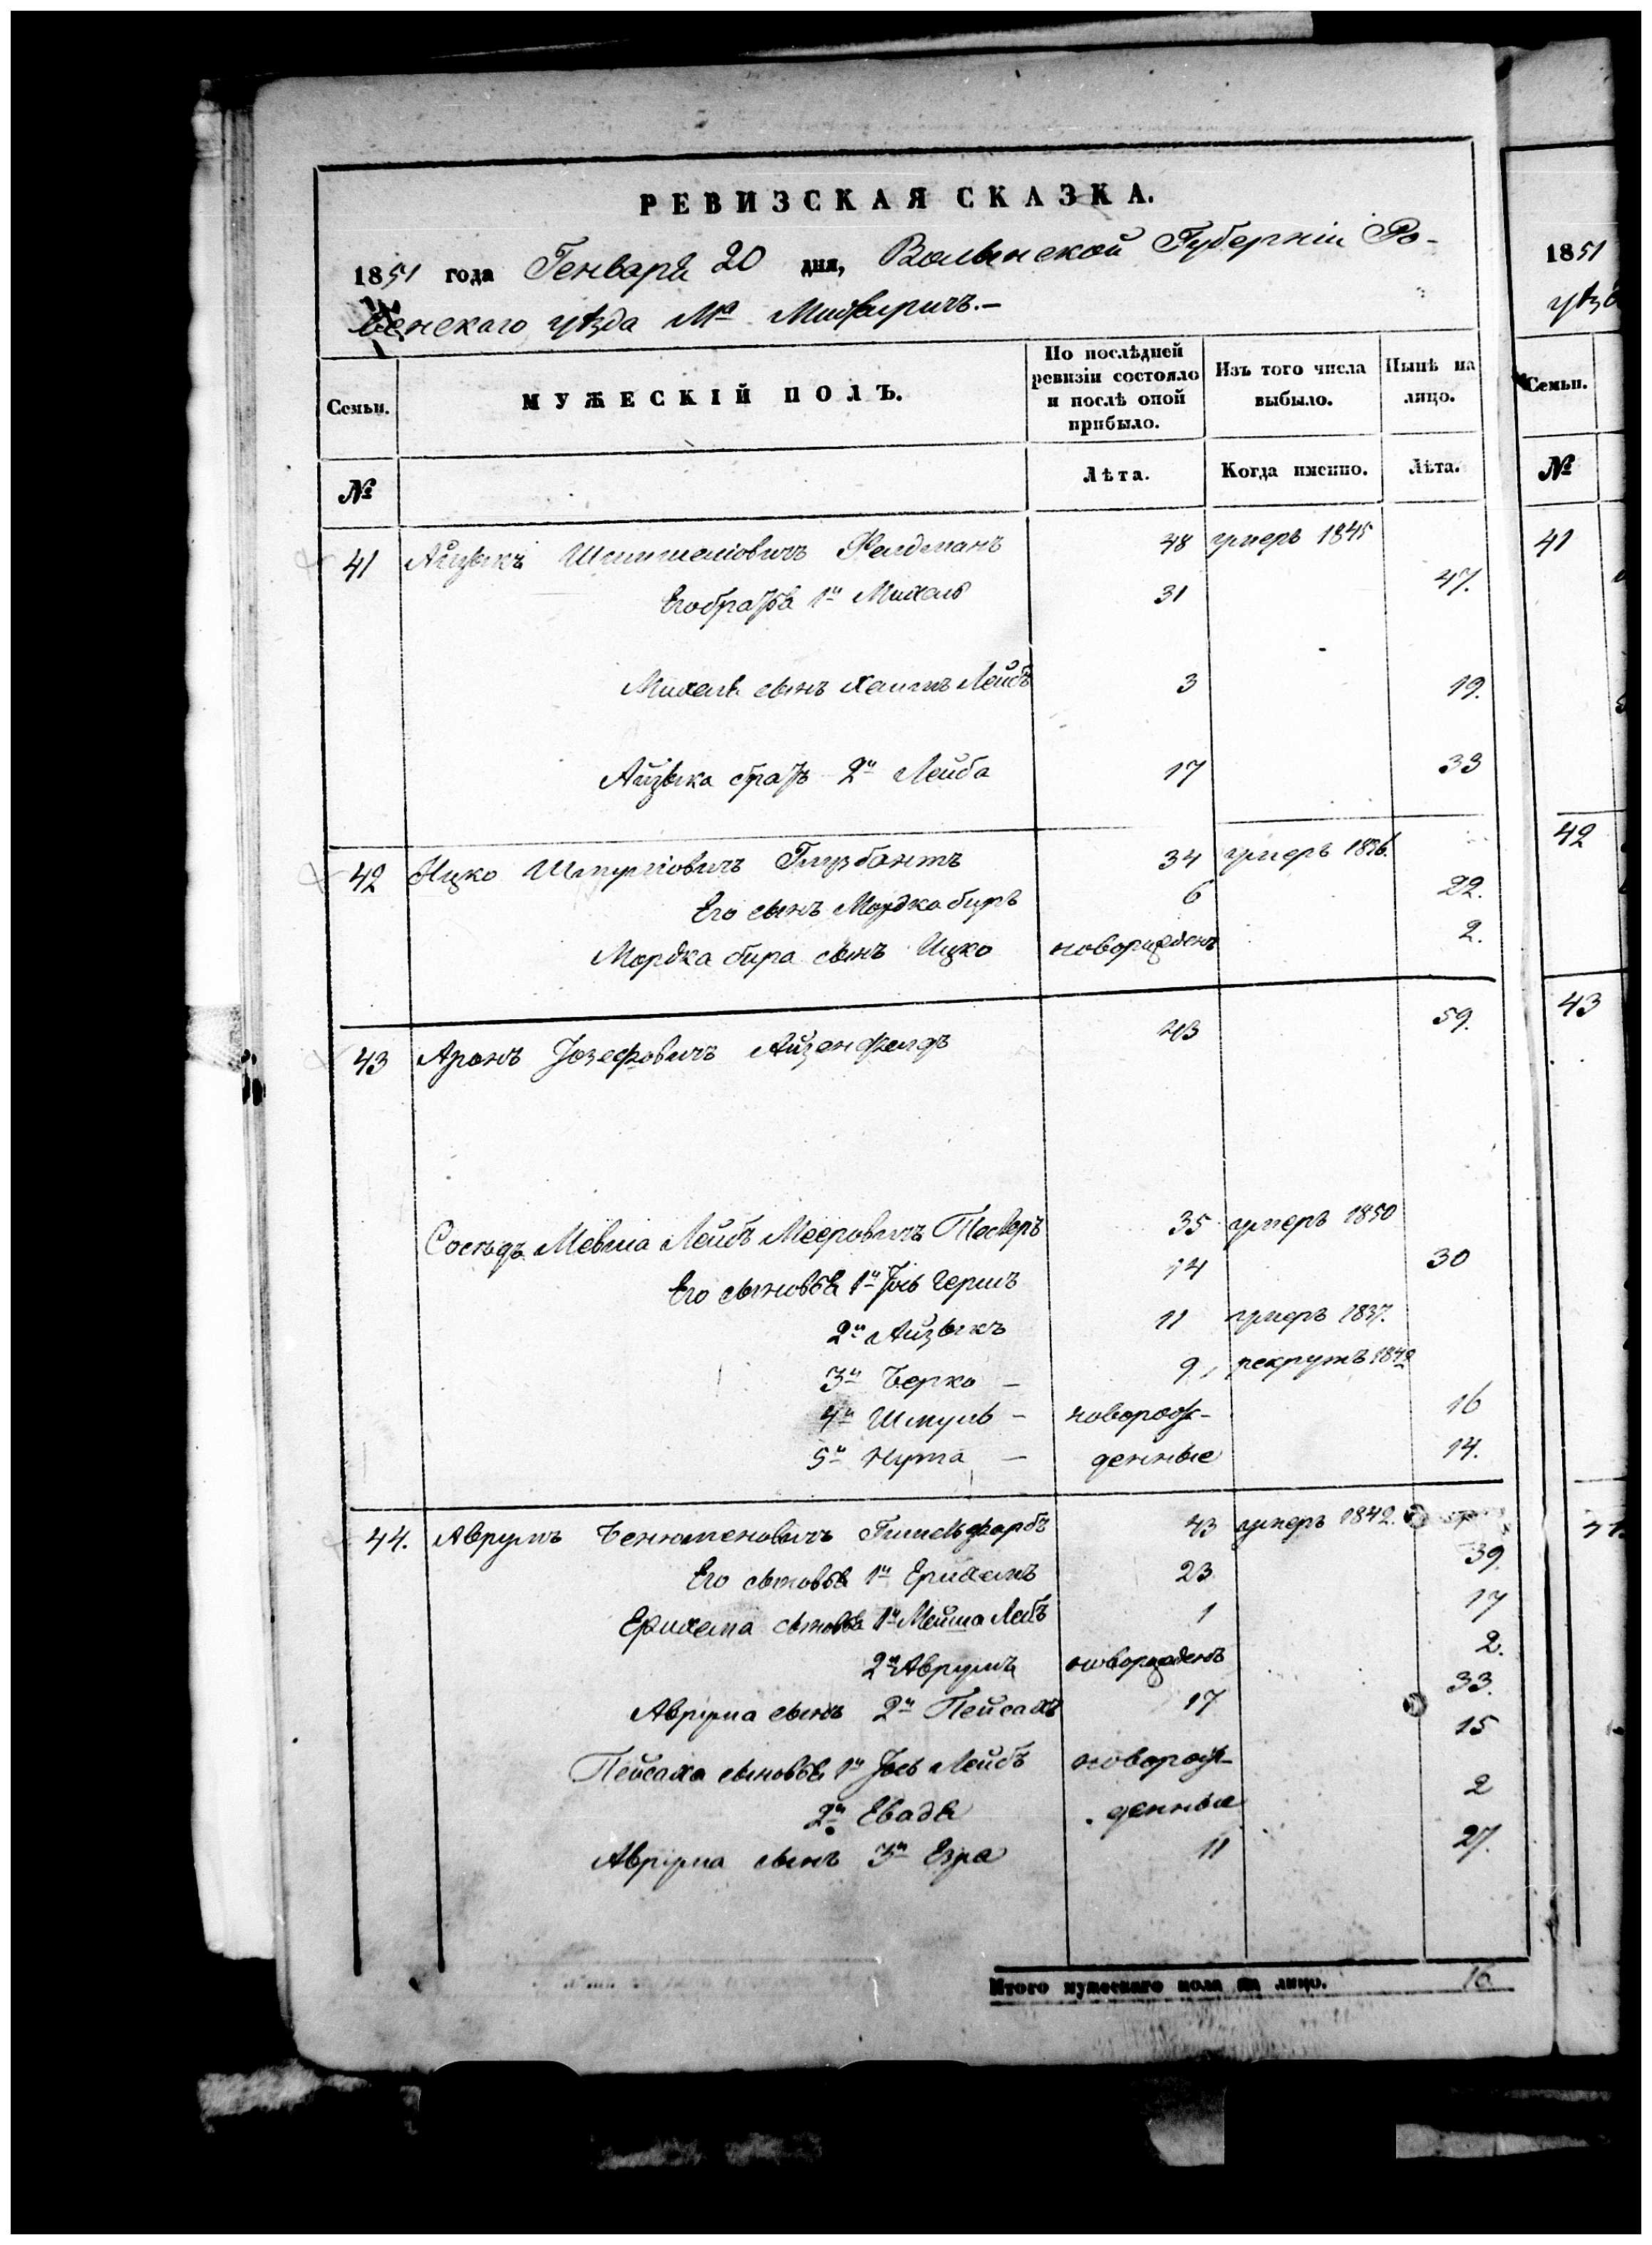 РЕВИЗСКАЯ СКАЗКА.
1851 года Генваря 20 дня, Волынской Губерніи Ро-
венскаго уѣзда Мᵃ Межиричъ.—
Семьи. МУЖЕСКІЙ ПОЛЪ. По послѣдней ревизіи состояло и послѣ оной прибыло. Изъ того числа выбыло. Нынѣ на лицо.
№ Лѣта. Когда именно. Лѣта.
41 Айзыкъ Фелдманъ 48 умеръ 1845
Его братья 1й Михель 31 47.
Михеля сынъ Хаимъ Лейбъ 3 19.
Айзыка братъ 2й Лейба 17 33
42 Ицко Шмуліовичъ 34 умеръ 1836.
Его сынъ Мордко биръ 6 22.
Мордка бира сынъ Ицко новорожденъ 2.
43 Аронъ Іозефовичъ Айзенфелдъ 43 59.
Сосѣдъ Мевша Лейбъ Мееровичъ 35 умеръ 1850
Его сыновья 1й Іось Гершъ 14 30
2й Айзыкъ 11 умеръ 1837.
3й Берко — 9, рекрутъ 1849
4й Шмуль — новорож- 16
5й Нута — денные 14.
44. Аврумъ Бенюменовичъ Гимельфарбъ 43 умеръ 1842.
Его сыновья 1й Ерихемъ 23 39.
Ерихема сыновья 1й Мейша Лейбъ 1 17
2й Аврумъ новорожденъ 2.
Аврума сынъ 2й Пейсахъ 17 33.
Пейсаха сыновья 1й Іось Лейбъ новорож- 15
2й Евадя денные 2
Аврума сынъ 3й Езра 11 27.
Итого мужескаго пола на лицо. 16
1851
уѣзд
Семьи.
№
41
42
43